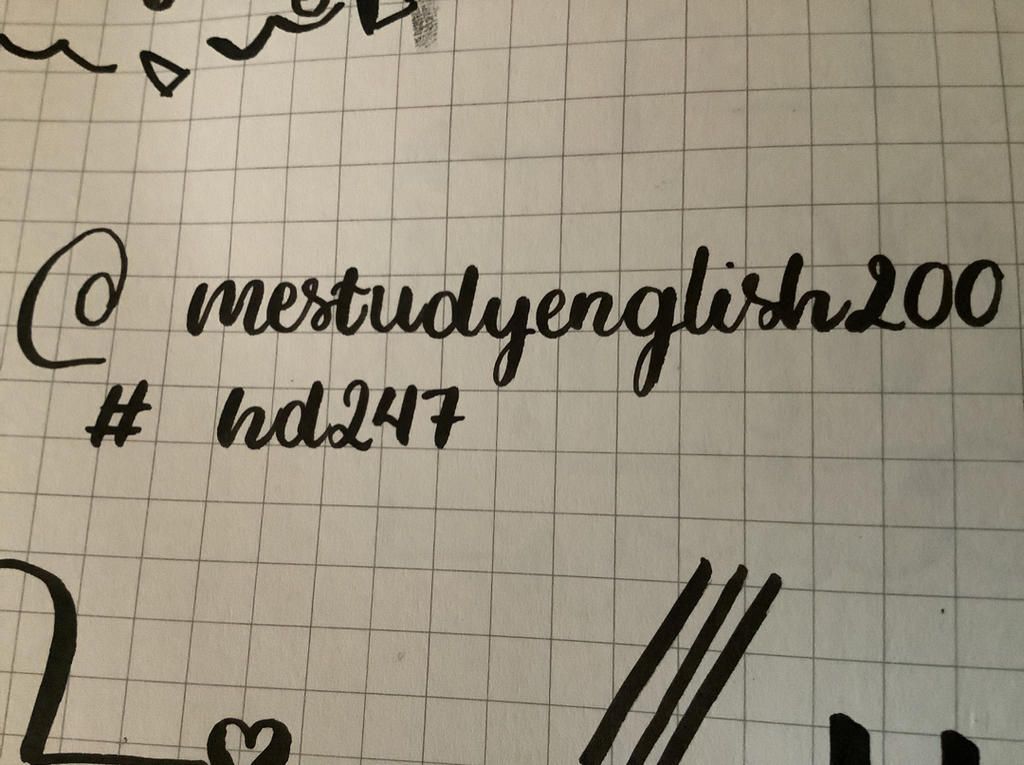 @ mestudyenglish200
# hd247